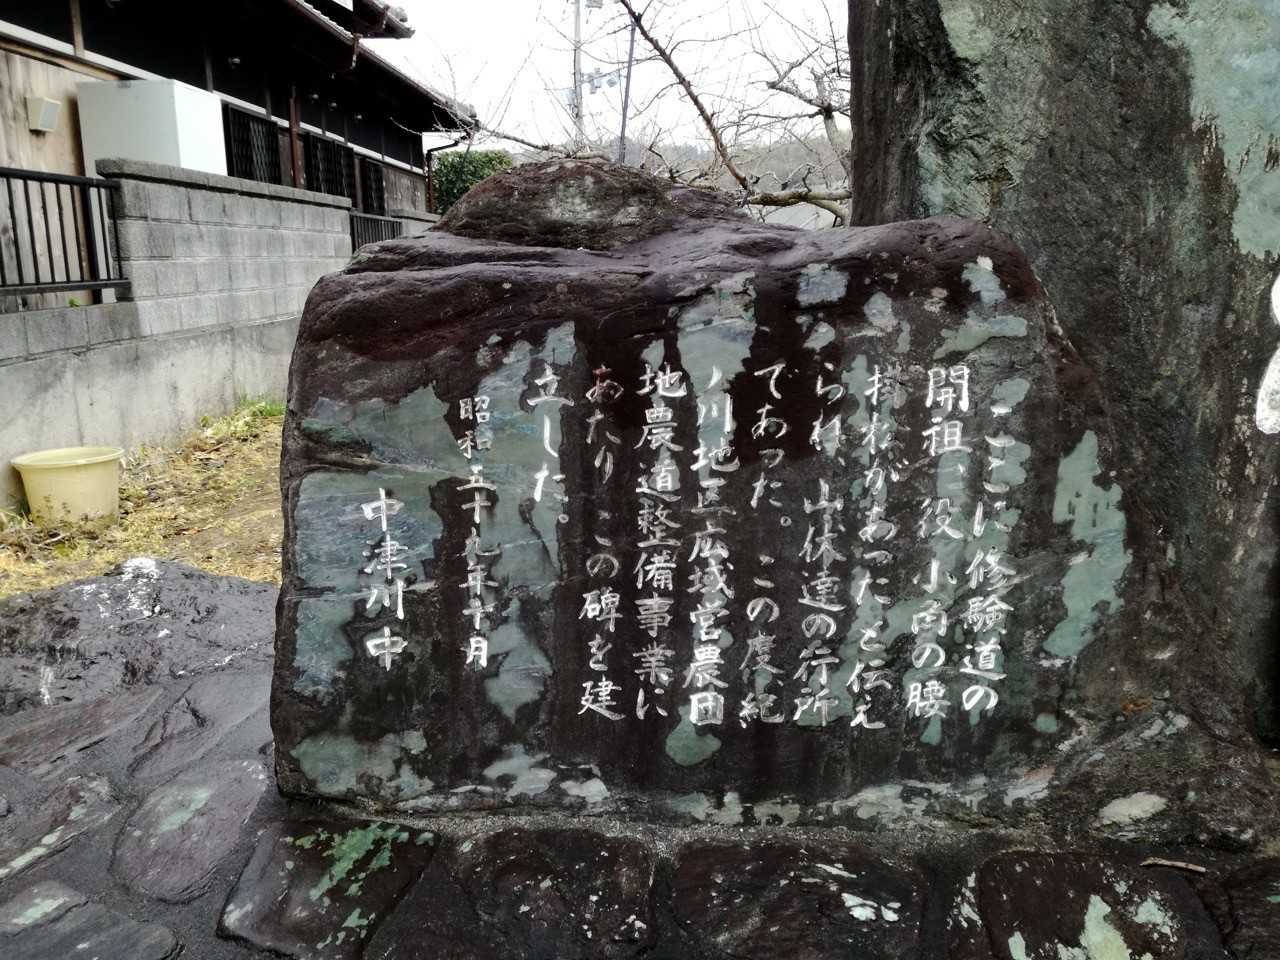 ここに修験道の
開祖、役小角の腰
掛松があったと伝え
られ、山伏達の行所
であった。この度紀
ノ川地区広域営農団
地農道整備事業に
あたりこの碑を建
立した。
昭和五十九年十月
中津川中